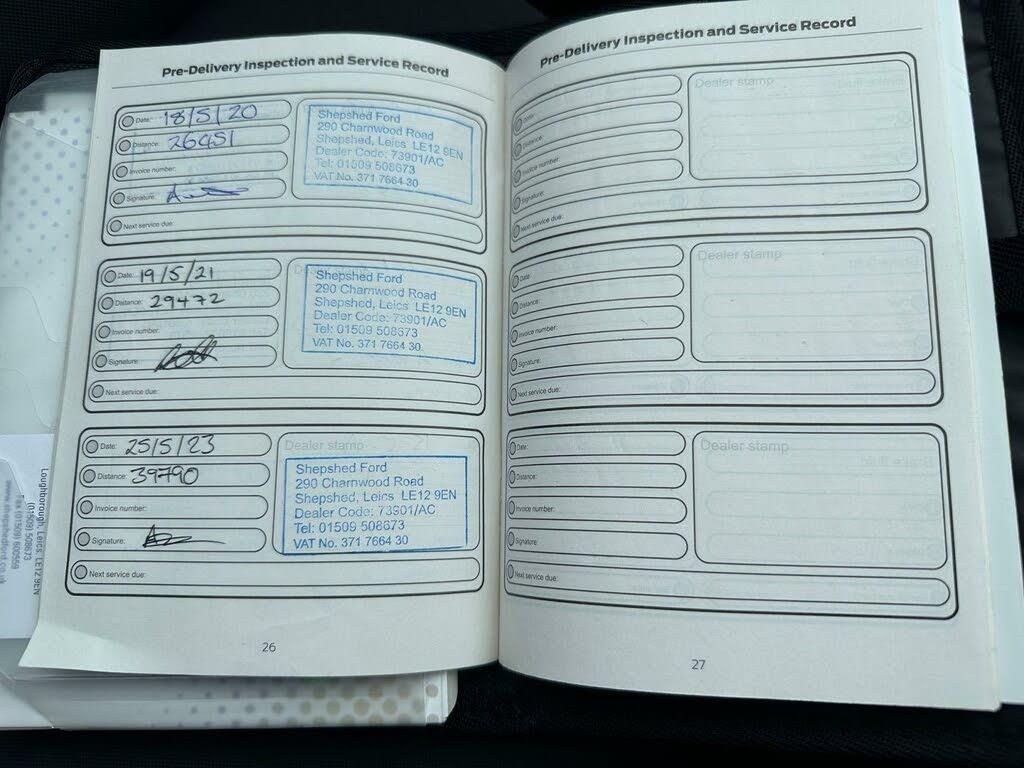 Pre-Delivery Inspection and Service Record
Date: 18/5/20
Distance: 26451
Invoice number:
Signature:
Next service due:
Shepshed Ford
290 Charnwood Road
Shepshed, Leics LE12 9EN
Dealer Code: 73901/AC
Tel: 01509 508673
VAT No. 371 7664 30
Date: 19/5/21
Distance: 29472
Invoice number:
Signature:
Next service due:
Shepshed Ford
290 Charnwood Road
Shepshed, Leics LE12 9EN
Dealer Code: 73901/AC
Tel: 01509 508673
VAT No. 371 7664 30
Date: 25/5/23
Distance: 39790
Invoice number:
Signature:
Next service due:
Dealer stamp
Shepshed Ford
290 Charnwood Road
Shepshed, Leics LE12 9EN
Dealer Code: 73901/AC
Tel: 01509 508673
VAT No. 371 7664 30
26
Pre-Delivery Inspection and Service Record
Date:
Distance:
Invoice number:
Signature:
Next service due:
Dealer stamp
Date:
Distance:
Invoice number:
Signature:
Next service due:
Dealer stamp
Date:
Distance:
Invoice number:
Signature:
Next service due:
Dealer stamp
27
Loughborough, Leics. LE12 9EN
(01509) 508673
Fax (01509) 600559
www.shepshedford.co.uk